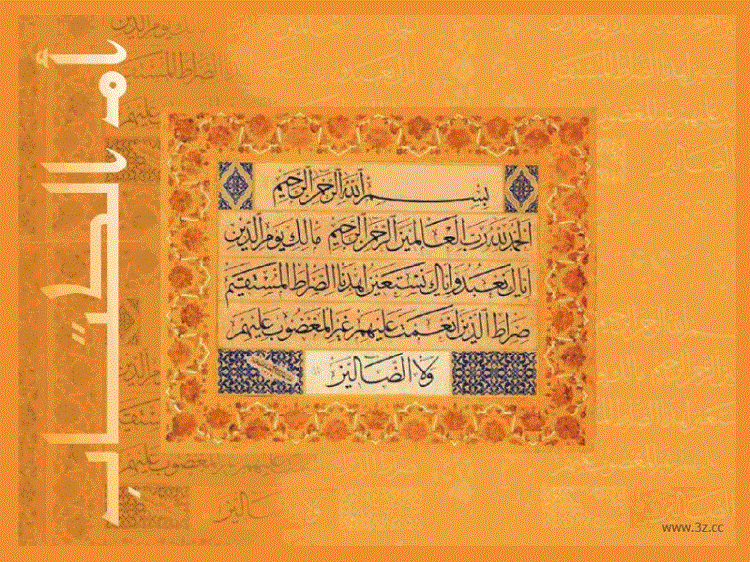 أم الكتاب
بسم الله الرحمن الرحيم
الحمد لله رب العالمين الرحمن الرحيم مالك يوم الدين
إياك نعبد وإياك نستعين اهدنا الصراط المستقيم
صراط الذين أنعمت عليهم غير المغضوب عليهم
ولا الضالين
www.3z.cc